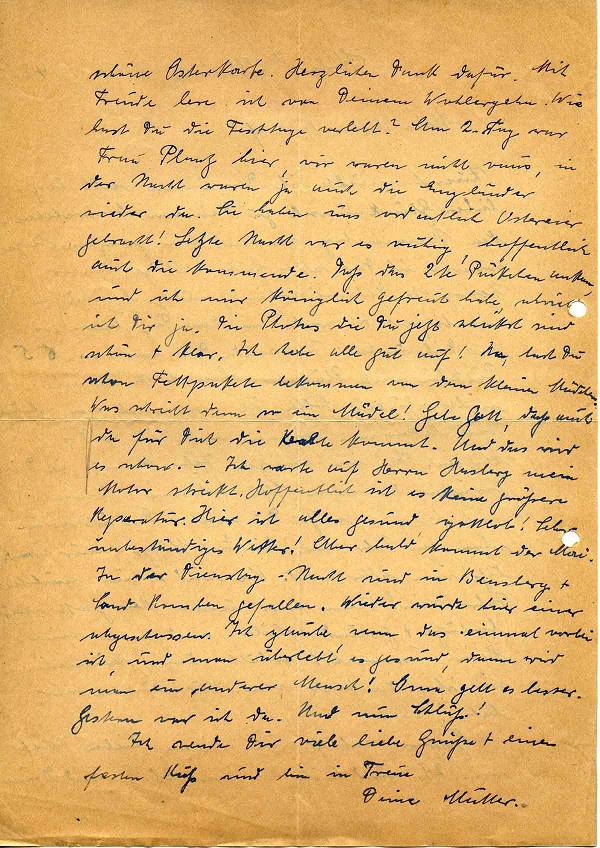 schöne Osterkarte. Herzlichen Dank dafür. Mit
Freude lese ich von Deinem Wohlergehen. Wie
hast Du die Festtage verlebt? Am 2. Tag war
Frau hier, wir waren nicht raus, in
der Nacht waren ja auch die Engländer
wieder da. Sie haben uns ordentlich Ostereier
gebracht! Letzte Nacht war es ruhig, hoffentlich
auch die kommende. Daß das 2te Päckchen ankam
und ich mich königlich gefreut habe, schrieb
ich Dir ja. Die Photos die Du jetzt schickst sind
schön + klar. Ich hebe alle gut auf! Na, hast Du
schon Feldpakete bekommen von dem kleinen Mädchen.
Was schreibt denn so ein Mädel! Gebe Gott, daß auch
da für Dich die Rechte kommt. Und das wird
es schon. – Ich warte auf Herrn mein
Motor streikt. Hoffentlich ist es keine größere
Reparatur. Hier ist alles gesund, gottlob! Sehr
unbeständiges Wetter! Aber bald kommt der Mai.
In der Dienstag-Nacht sind in Bensberg +
Land Bomben gefallen. Wieder wurde hier einer
abgeschossen. Ich glaube wenn das einmal vorbei
ist, und man überlebt es gesund, dann wird
man ein anderer Mensch! Oma geht es besser.
Gestern war ich da. Und nun Schluß!
Ich sende Dir viele liebe Grüße + einen
festen Kuß und bin in Treue
Deine Mutter.